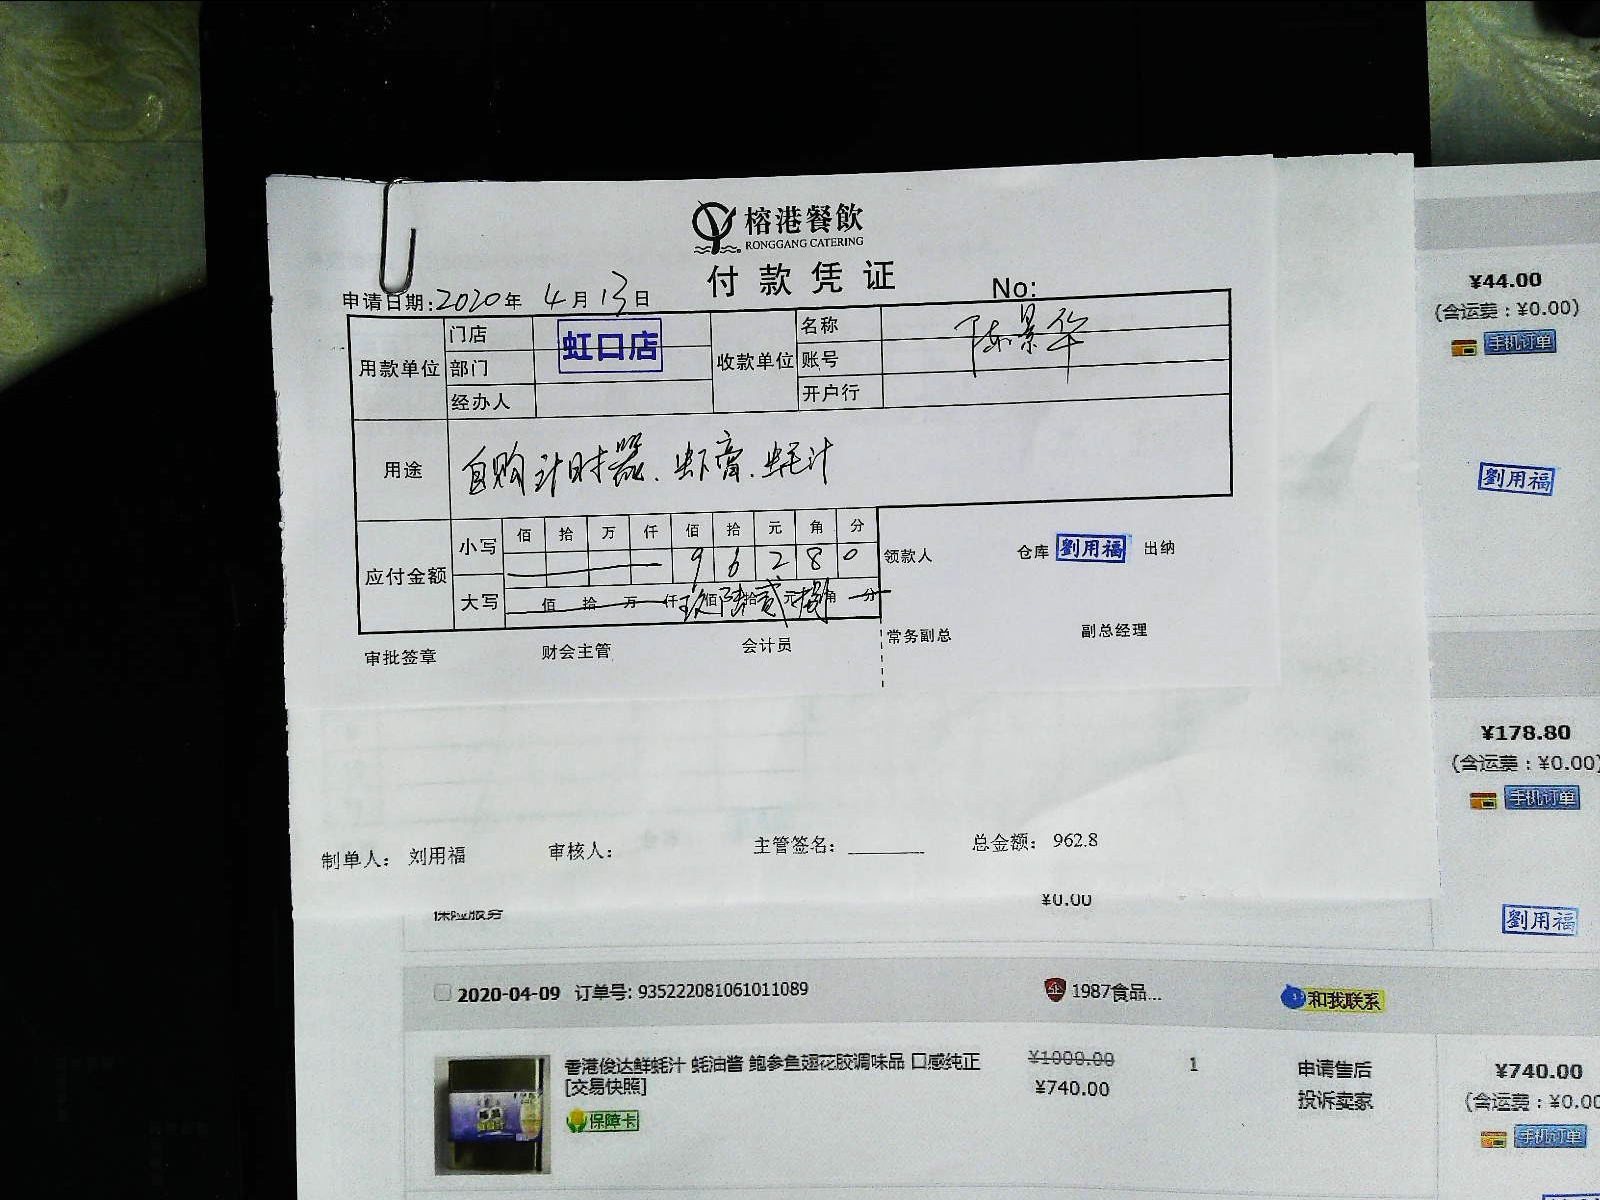 榕港餐飲
RONGGANG CATERING
付款凭证
No:
申请日期:2020年 4月13日
用款单位 门店 虹口店 收款单位 名称 陈景华
部门 账号
经办人 开户行
用途 自购计时器、虾膏、蚝汁
应付金额 小写 佰 拾 万 仟 佰 拾 元 角 分
9 6 2 8 0
大写 佰 拾 万 仟 玖佰 陆拾 贰元 捌角 分
领款人 仓库 劉用福 出纳
审批签章 财会主管 会计员 常务副总 副总经理
制单人: 刘用福 审核人: 主管签名: 总金额: 962.8
¥44.00
(含运费:¥0.00)
手机订单
劉用福
¥178.80
(含运费:¥0.00)
手机订单
劉用福
保险服务 ¥0.00
2020-04-09 订单号: 935222081061011089 1987食品... 和我联系
香港俊达鲜蚝汁 蚝油酱 鲍参鱼翅花胶调味品 口感纯正 ¥1000.00 1 申请售后 ¥740.00
[交易快照] ¥740.00 投诉卖家 (含运费:¥0.00
保障卡 手机订单